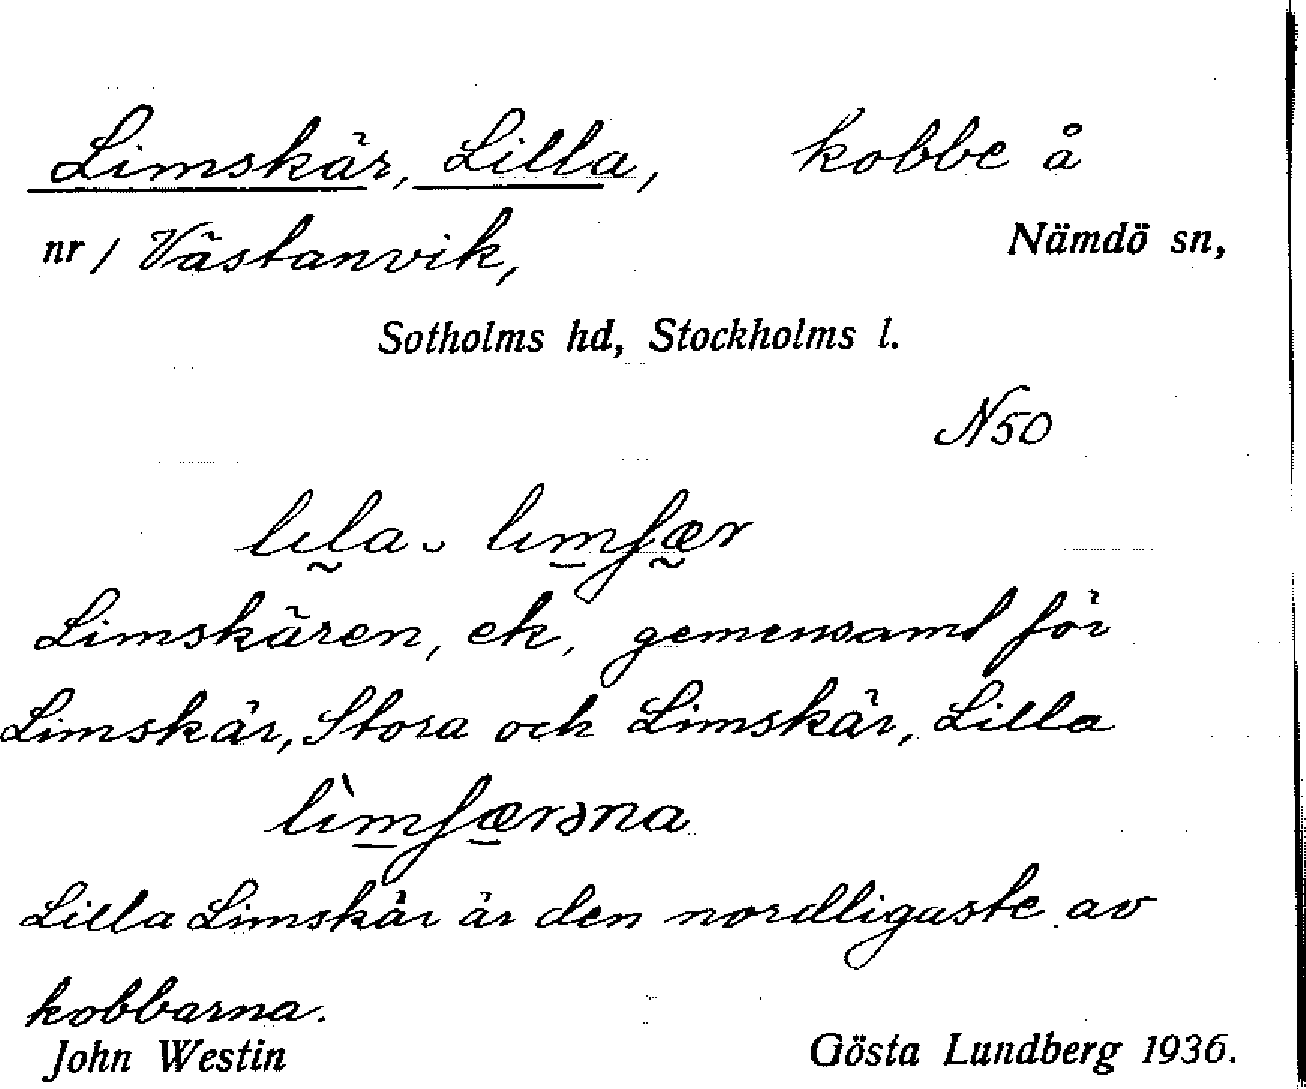 Limskär, Lilla, kobbe å
nr 1 Västanvik, Nämdö sn,
Sotholms hd, Stockholms l.
N50
lıla ̮ lımʃær
Limskären, ek, gemensamt för
Limskär, Stora och Limskär, Lilla
lìmʃærəna
Lilla Limskär är den nordligaste av
kobbarna.
John Westin Gösta Lundberg 1936.